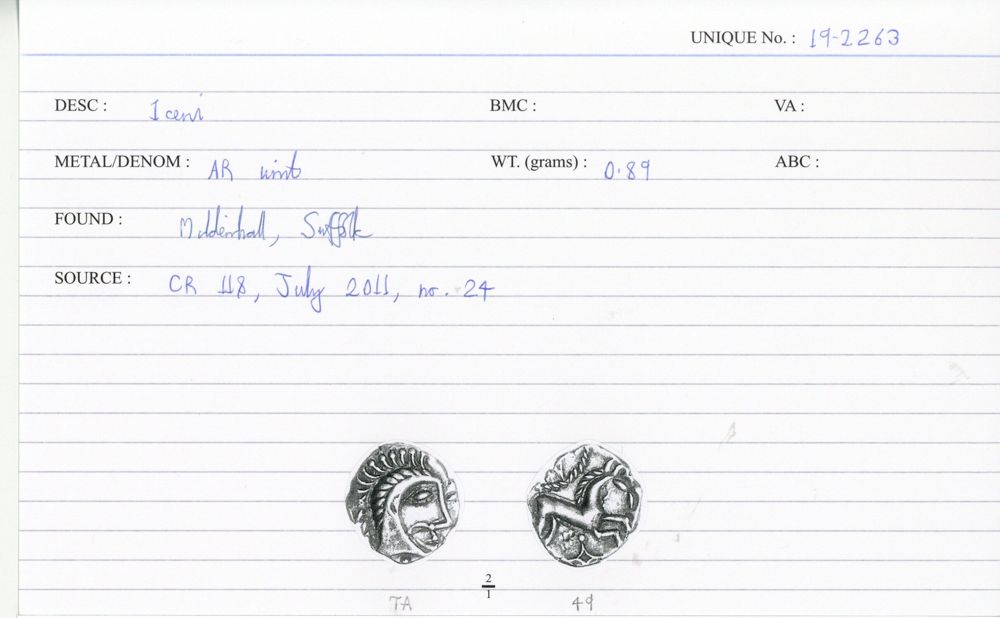 UNIQUE No. : 19-2263
DESC : Iceni BMC : VA :
METAL/DENOM : AR unit WT. (grams) : 0.89 ABC :
FOUND : Mildenhall, Suffolk
SOURCE : CR 118, July 2011, no. 24
2
1
TA 49